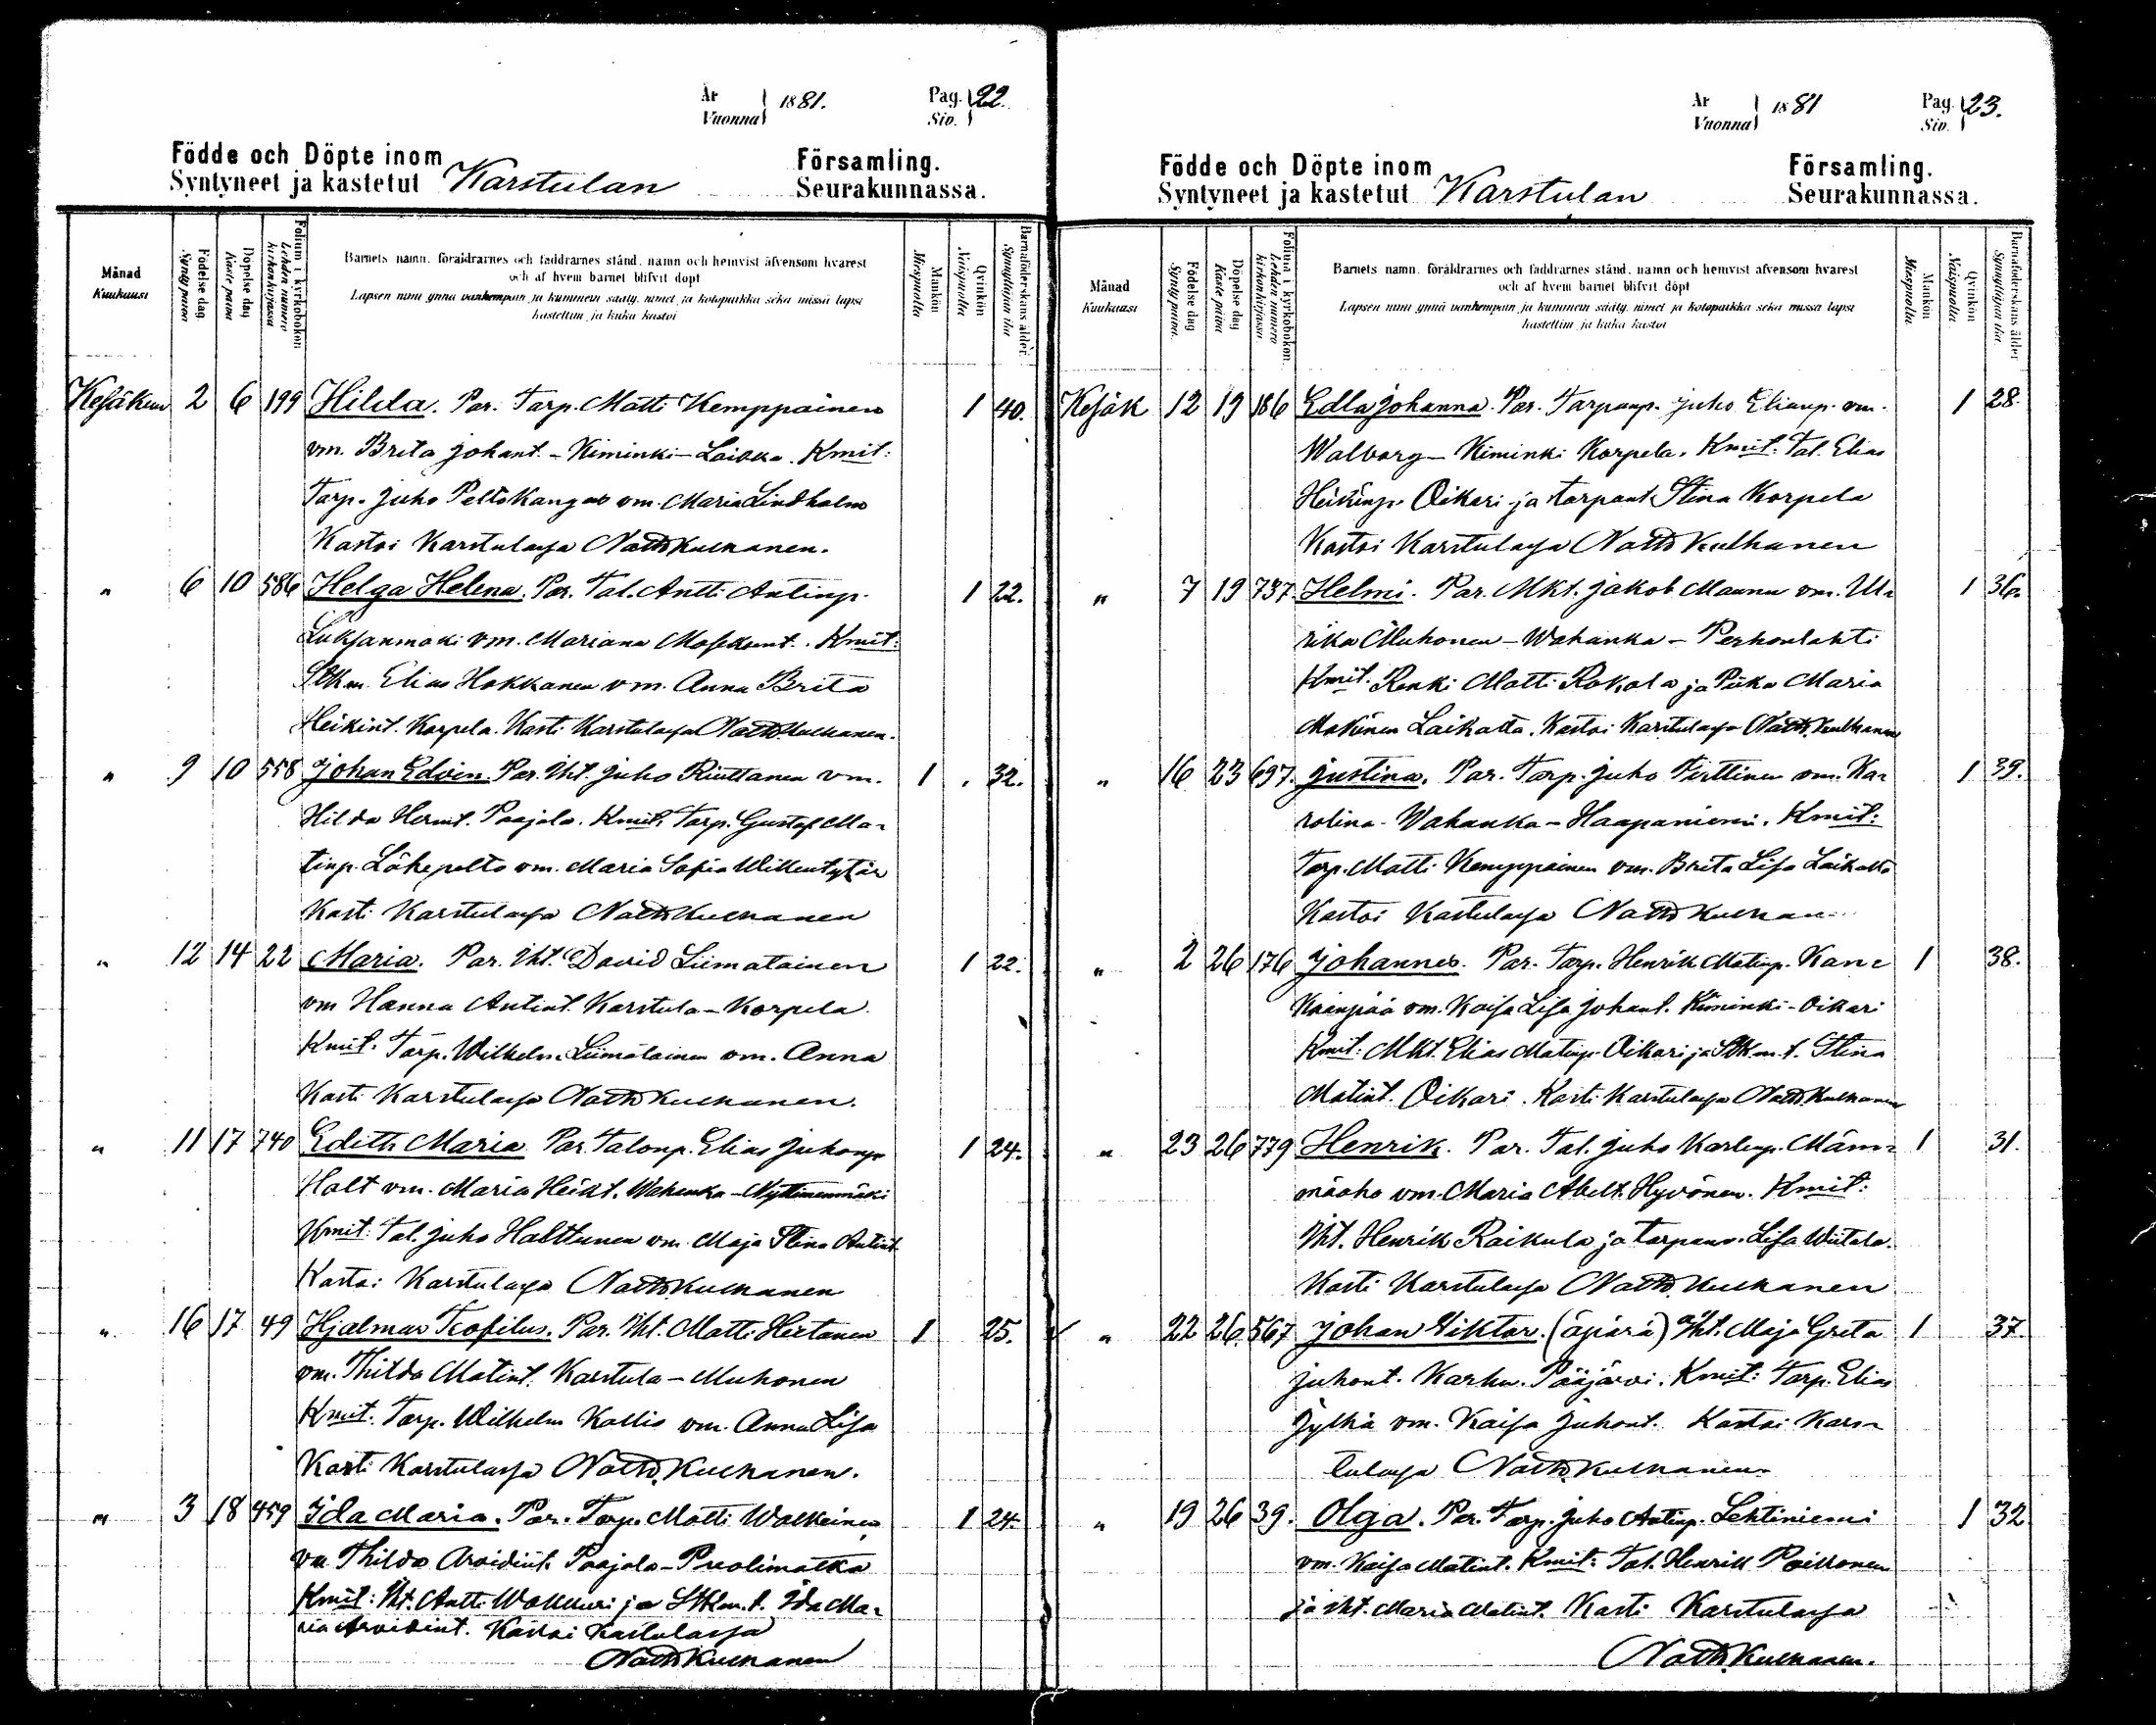 År 1881. Pag. 22.
Vuonna Siv.
Födde och Döpte inom Församling.
Syntyneet ja kastetut Karstulan Seurakunnassa.
Månad
Kuukausi
Födelse dag
Synty päivä
Döpelse dag
Kaste päivä
Folium i kyrkoboken
Lehden numero kirkonkirjassa
Barnets namn, föräldrarnes och faddrarnes stånd, namn och hemvist äfvensom hvarest
och af hvem barnet blifvit döpt
Lapsen nimi ynnä vanhempain ja kummein sääty, nimet ja kotopaikka sekä missä lapsi
kastettiin ja kuka kastoi
Mankön
Miespuolia
Qvinkön
Naispuolia
Barnaföderskans ålder.
Synnyttäjän ikä
Kesäkuu 2 6 199 Hilda. Par. Tarp. Matti Kemppainen 1 40.
vm. Brita Johant. - Kiminki - Laikka. Kmit:
Tarp. Juho Peltokangas vm. Maria Lindholm
Kastoi Karstulassa Nath Kulhanen.
" 6 10 586 Helga Helena. Par. Tal. Antti Antinp. 1 22.
Luksanmäki vm. Mariana Moseksent. Kmit:
Stkm. Elias Hokkanen vm. Anna Brita
Heikint. Korpela. Kasti Karstulassa Nath. Kulhanen.
" 9 10 558 Johan Edvin. Par. Iht. Juho Riuttanen vm. 1 32.
Hilda Hermt. Paajala. Kmit. Tarp. Gustaf Ma-
tinp. Lähepelto vm. Maria Sofia Willentytär
Kasti Karstulassa Nath Kulhanen
" 12 14 22 Maria. Par. Iht. David Liimatainen 1 22.
vm Hanna Antint. Karstula - Korpela.
Kmit. Tarp. Wilhelm Liimatainen vm. Anna
Kasti Karstulassa Nath Kulhanen.
" 11 17 740 Edith Maria. Par. Talonp. Elias Juhonp. 1 24.
Halt vm. Maria Heikt. Wahanka - Nyttimenmäki
Kmit: Tal. Juho Halttunen vm. Maja Stina Antint.
Kastoi Karstulassa Nath Kulhanen
" 16 17 49 Hjalmar Teofilus. Par. Iht. Matti Hietanen 1 25.
vm. Thilda Matint. Karstula - Muhonen
Kmit: Tarp. Wilhelm Kallio vm. Anna Lisa
Kasti Karstulassa Nath. Kulhanen.
" 3 18 459 Ida Maria. Par. Tarp. Matti Walkeinen 1 24.
vm Thilda Arvidint. Paajala - Puolimatka
Kmit: Iht. Antti Wakkuri ja Stkm. t. Ida Ma-
ria Arvidint. Kastoi Karstulassa
Nath Kulhanen
År 1881 Pag. 23.
Vuonna Siv.
Födde och Döpte inom Församling.
Syntyneet ja kastetut Karstulan Seurakunnassa.
Månad
Kuukausi
Födelse dag
Synty päivä.
Döpelse dag
Kaste päivä
Folium i kyrkoboken.
Lehden numero kirkonkirjassa.
Barnets namn, föräldrarnes och faddrarnes stånd, namn och hemvist äfvensom hvarest
och af hvem barnet blifvit döpt
Lapsen nimi ynnä vanhempain ja kummein sääty, nimet ja kotopaikka sekä missä lapsi
kastettiin ja kuka kastoi
Mankön
Miespuolia
Qvinkön
Naispuolia
Barnaföderskans ålder
Synnyttäjän ikä.
Kesäk 12 19 186 Edla Johanna. Par. Tarpanp. Juho Eliaup. vm. 1 28.
Walborg - Kiminki Korpela. Kmit: Tal. Elias
Heikinp. Oikari ja tarpant Stina Korpela
Kastoi Karstulassa Nath Kulhanen
" 7 19 737. Helmi. Par. Mkt. Jakob Maunu vm. Ul- 1 36.
rika Muhonen - Wahanka - Perhonlahti
Kmit. Renki Matti Rokala ja Piika Maria
Makinen Laikatta. Kastoi Karstulassa Nath. Kulhanen
" 16 23 697. Justina. Par. Tarp. Juho Pirttinen vm. Ka- 1 39.
rolina - Wahanka - Haapaniemi. Kmit:
Tarp. Matti Kemppainen vm. Brita Lisa Laikatta
Kastoi Kastulassa Nath Kulhanen
" 2 26 176 Johannes. Par. Tarp. Henrik Matinp. Kan- 1 38.
kaanpää vm. Kaisa Lisa Johant. Kiminki - Oikari
Kmit: Mkt. Elias Matinp. Oikari ja Stkm. t. Stina
Matint. Oikari. Kasti Karstulassa Nath. Kulhanen
" 23 26 779 Henrik. Par. Tal. Juho Karlinp. Männ- 1 31.
mäaho vm. Maria Abelt. Hyvönen. Kmit:
Iht. Henrik Raikula ja tarpanv. Lisa Wiitala.
Kasti Karstulassa Nath. Kulhanen
" 22 26. 567 Johan Viktor. (äpärä) Iht. Maja Greta 1 37.
Juhont. Karhu. Pääjärvi. Kmit: Tarp. Elias
Jylhä vm. Kaisa Juhont. Kastoi Kars-
tulassa Nath. Kulhanen.
" 19 26 39. Olga. Par. Tarp. Juho Antinp. Lehtiniemi 1 32
vm. Kaisa Matint. Kmit: Tal. Henrik Poikonen
ja Iht. Maria Matint. Kasti Karstulassa
Nath. Kulhanen.